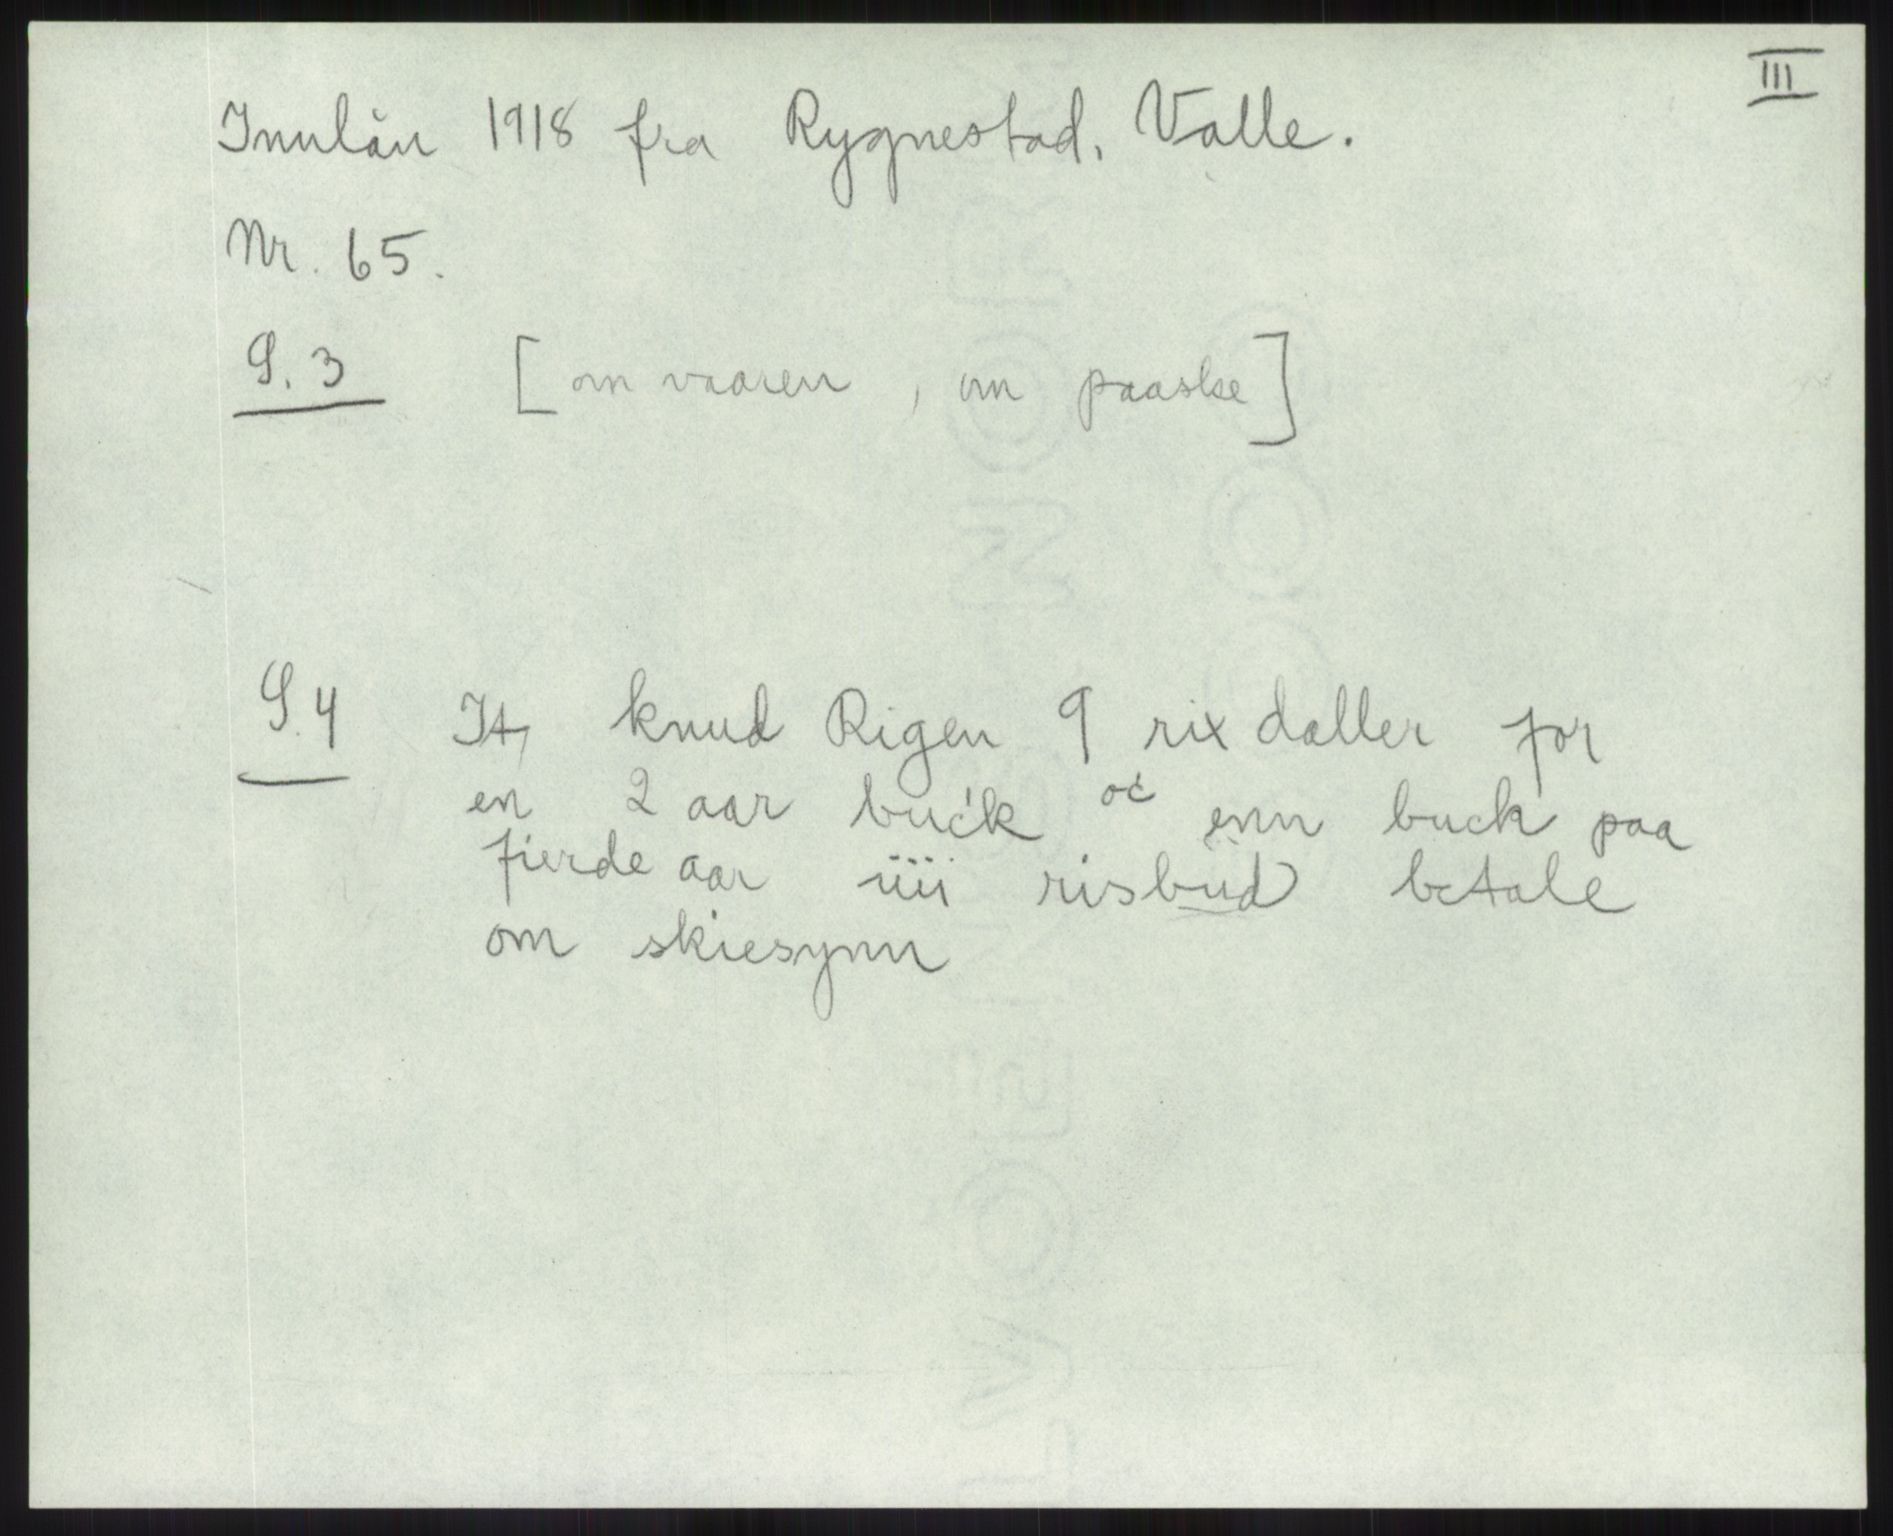 III
Innlån 1918 fra Rygnestad, Valle.
Nr. 65.
S. 3 [om vaaren, om paaske]
S. 4 It, knud Rigen 9 rix daller for
en 2 aar buck oc enn buck paa
fierde aar iiii risbud betale
om skiesynn